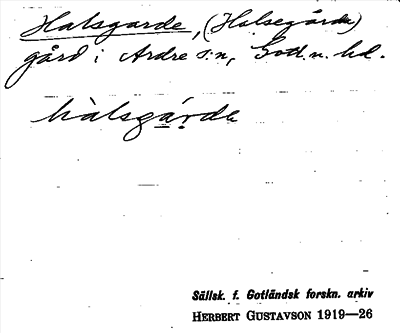 Halsgarde, (Halsegårda)
gård i Ardre s:n, Gotl. n. hd.
hàlsgárda
Sällsk. f. Gotländsk forskn. arkiv
HERBERT GUSTAVSON 1919—26